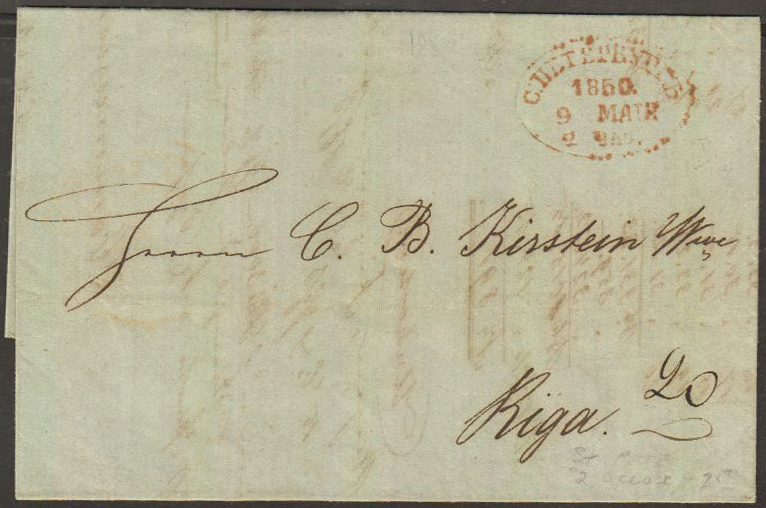 С.ПЕТЕРБУРГЪ
1850.
9 МАIЯ
2 ЧАС.
Herrn C. B. Kirstein Wwe
Riga.
20